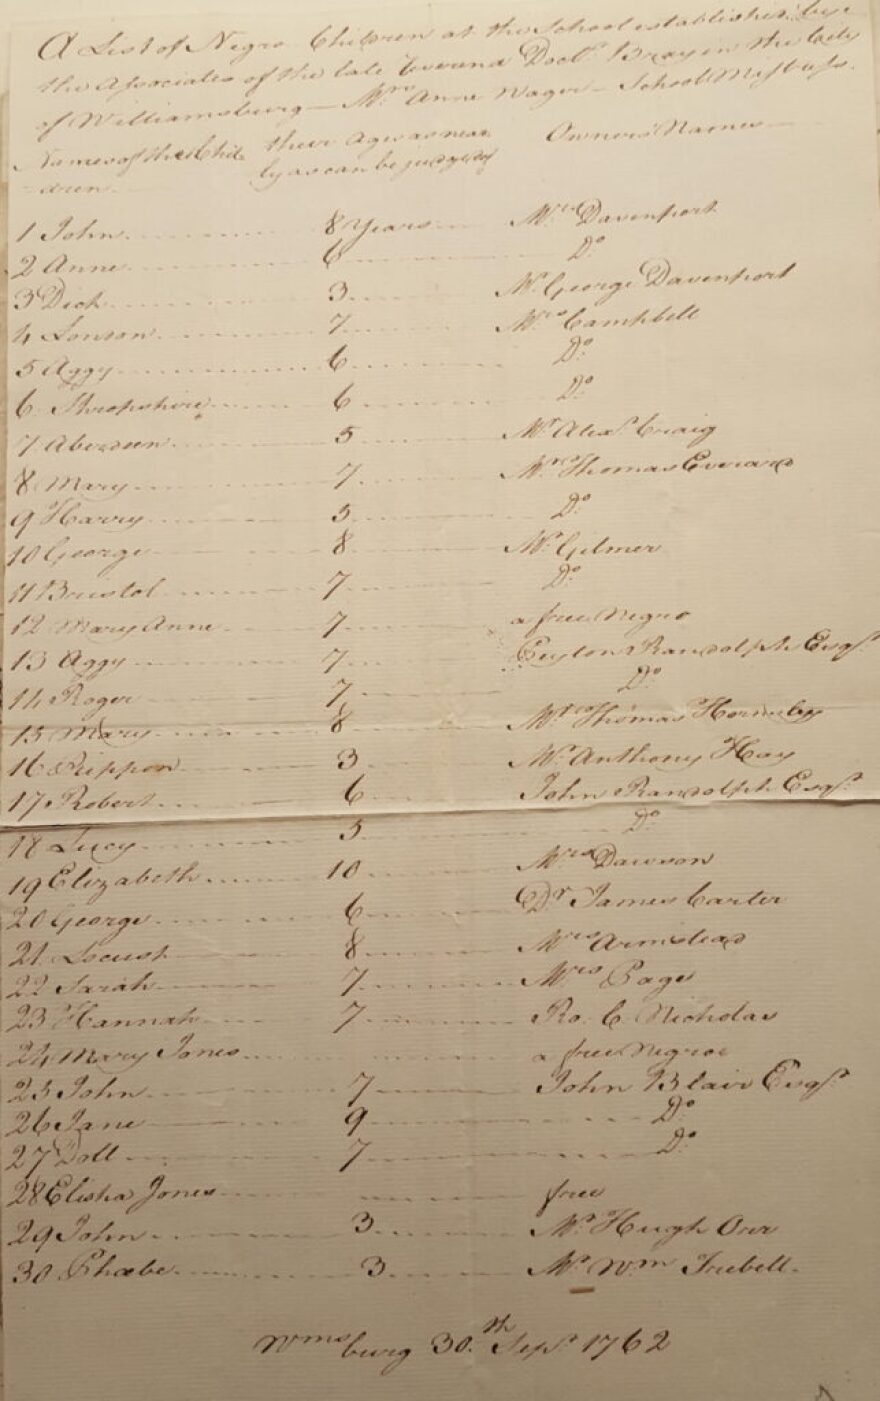 A List of Negro Children at the School established by
the Associates of the late Reverend Doctr. Bray in the City
of Williamsburg — Mrs. Anne Wager — School Mistress.
Names of the Chil- their Age as near Owners Names
=dren ly as can be judged of
1 John 8 Years Mrs. Davenport
2 Anne 6 Do.
3 Dick 3 Mr. George Davenport
4 London 7 Mrs. Campbell
5 Aggy 6 Do.
6 Shropshire 6 Do.
7 Aberdeen 5 Mr. Alexr. Craig
8 Mary 7 Mr. Thomas Everard
9 Harry 5 Do.
10 George 8 Mr. Gilmer
11 Bristol 7 Do.
12 Mary Anne 7 a free Negro
13 Aggy 7 Peyton Randolph Esqr.
14 Roger 7 Do.
15 Mary 8 Mrs. Thomas Hornsby
16 Rippon 3 Mr. Anthony Hay
17 Robert 6 John Randolph Esqr.
18 Lucy 5 Do.
19 Elizabeth 10 Mrs. Dawson
20 George 6 Dr. James Carter
21 Locust 8 Mrs. Armistead
22 Sarah 7 Mrs. Page
23 Hannah 7 Ro. C Nicholas
24 Mary Jones a free Negroe
25 John 7 John Blair Esqr.
26 Jane 9 Do.
27 Doll 7 Do.
28 Elisha Jones free
29 John 3 Mr. Hugh Orr
30 Phœbe 3 Mr. Wm. Trebell.
Wmsburg 30.th Sepr. 1762